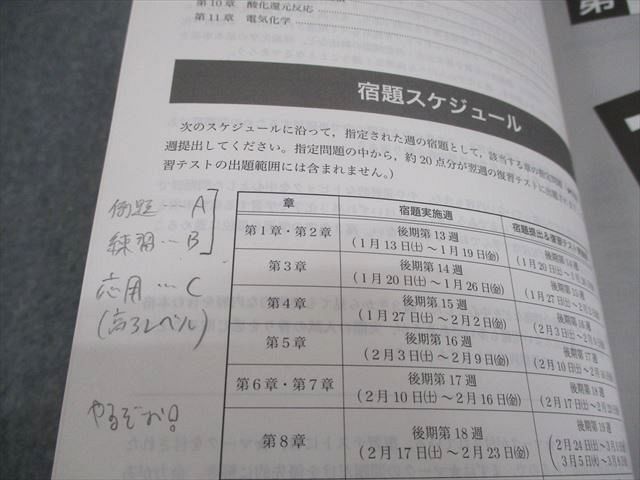 第10章 酸化還元反応
第11章 電気化学
第
宿題スケジュール
次のスケジュールに沿って,指定された週の宿題として,該当する章の
週提出してください。指定問題の中から,約20点分が翌週の復習テストに出題され
習テストの出題範囲には含まれません。)
例題…A
練習…B
応用…C
(高3レベル)
やるぞお!
章 宿題実施週 宿題提出&復習テスト
第1章・第2章 後期第13週 後期第14週
(1月13日(土)〜1月19日(金)) (1月20日(土)〜1月26日
第3章 後期第14週 後期第15週
(1月20日(土)〜1月26日(金)) (1月27日(土)〜2月2
第4章 後期第15週 後期第16週
(1月27日(土)〜2月2日(金)) (2月3日(土)〜2月
第5章 後期第16週 後期第17週
(2月3日(土)〜2月9日(金)) (2月10日(土)〜2月
第6章・第7章 後期第17週 後期第18週
(2月10日(土)〜2月16日(金)) (2月17日(土)〜2月
第8章 後期第18週
(2月17日(土)〜2月23日(金)) (2月24日(土)〜3月
3月5日(火)〜3月8日